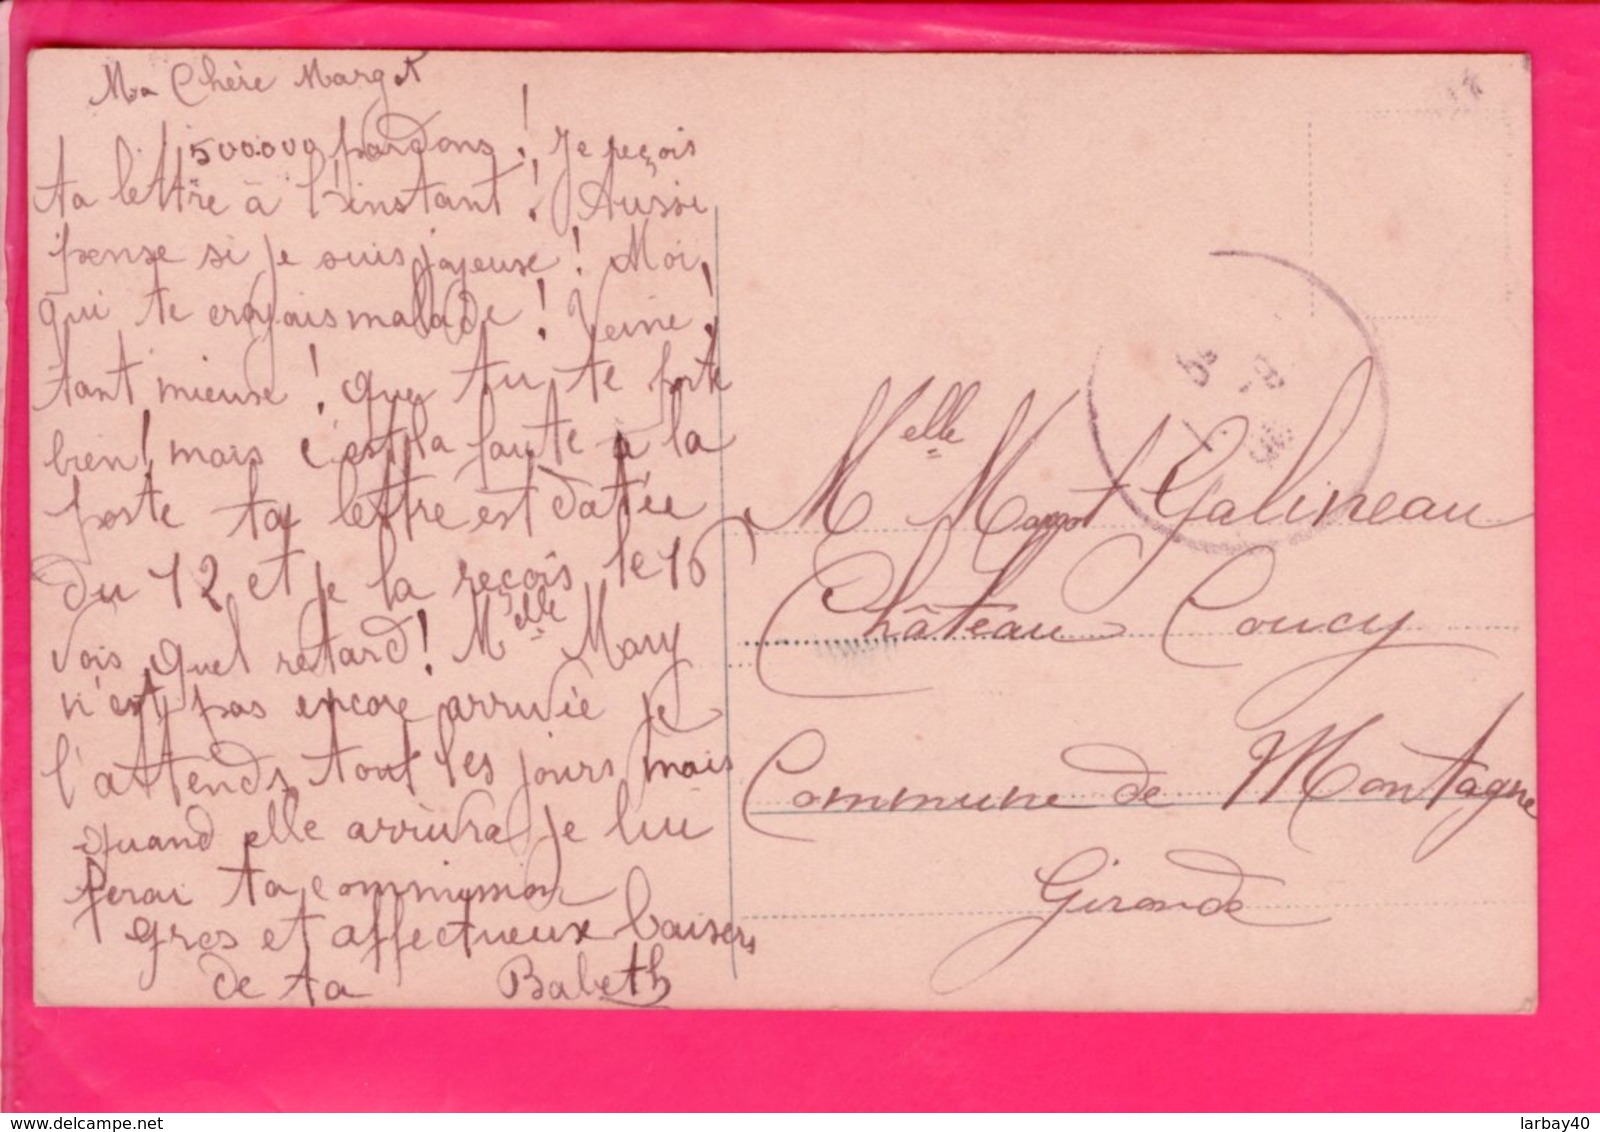 Ma Chère Margot
500.000 pardons! Je reçois
ta lettre à l'instant! Aussi
pense si je suis joyeuse! Moi,
qui te croyais malade! Veine!
tant mieuse! que tu te porte
bien! mais c'est la faute à la
poste ta lettre est datée
du 12 et je la reçois le 16
Vois quel retard! Melle Mary
n'est pas encore arrivée je
l'attends tout les jours mais
quand elle arrivra je lui
ferai ta commission
gros et affectueux baisers
de ta Babeth
Melle Margot Galineau
Château Coucy
Commune de Montagne
Gironde
www.delcampe.net
larbay40